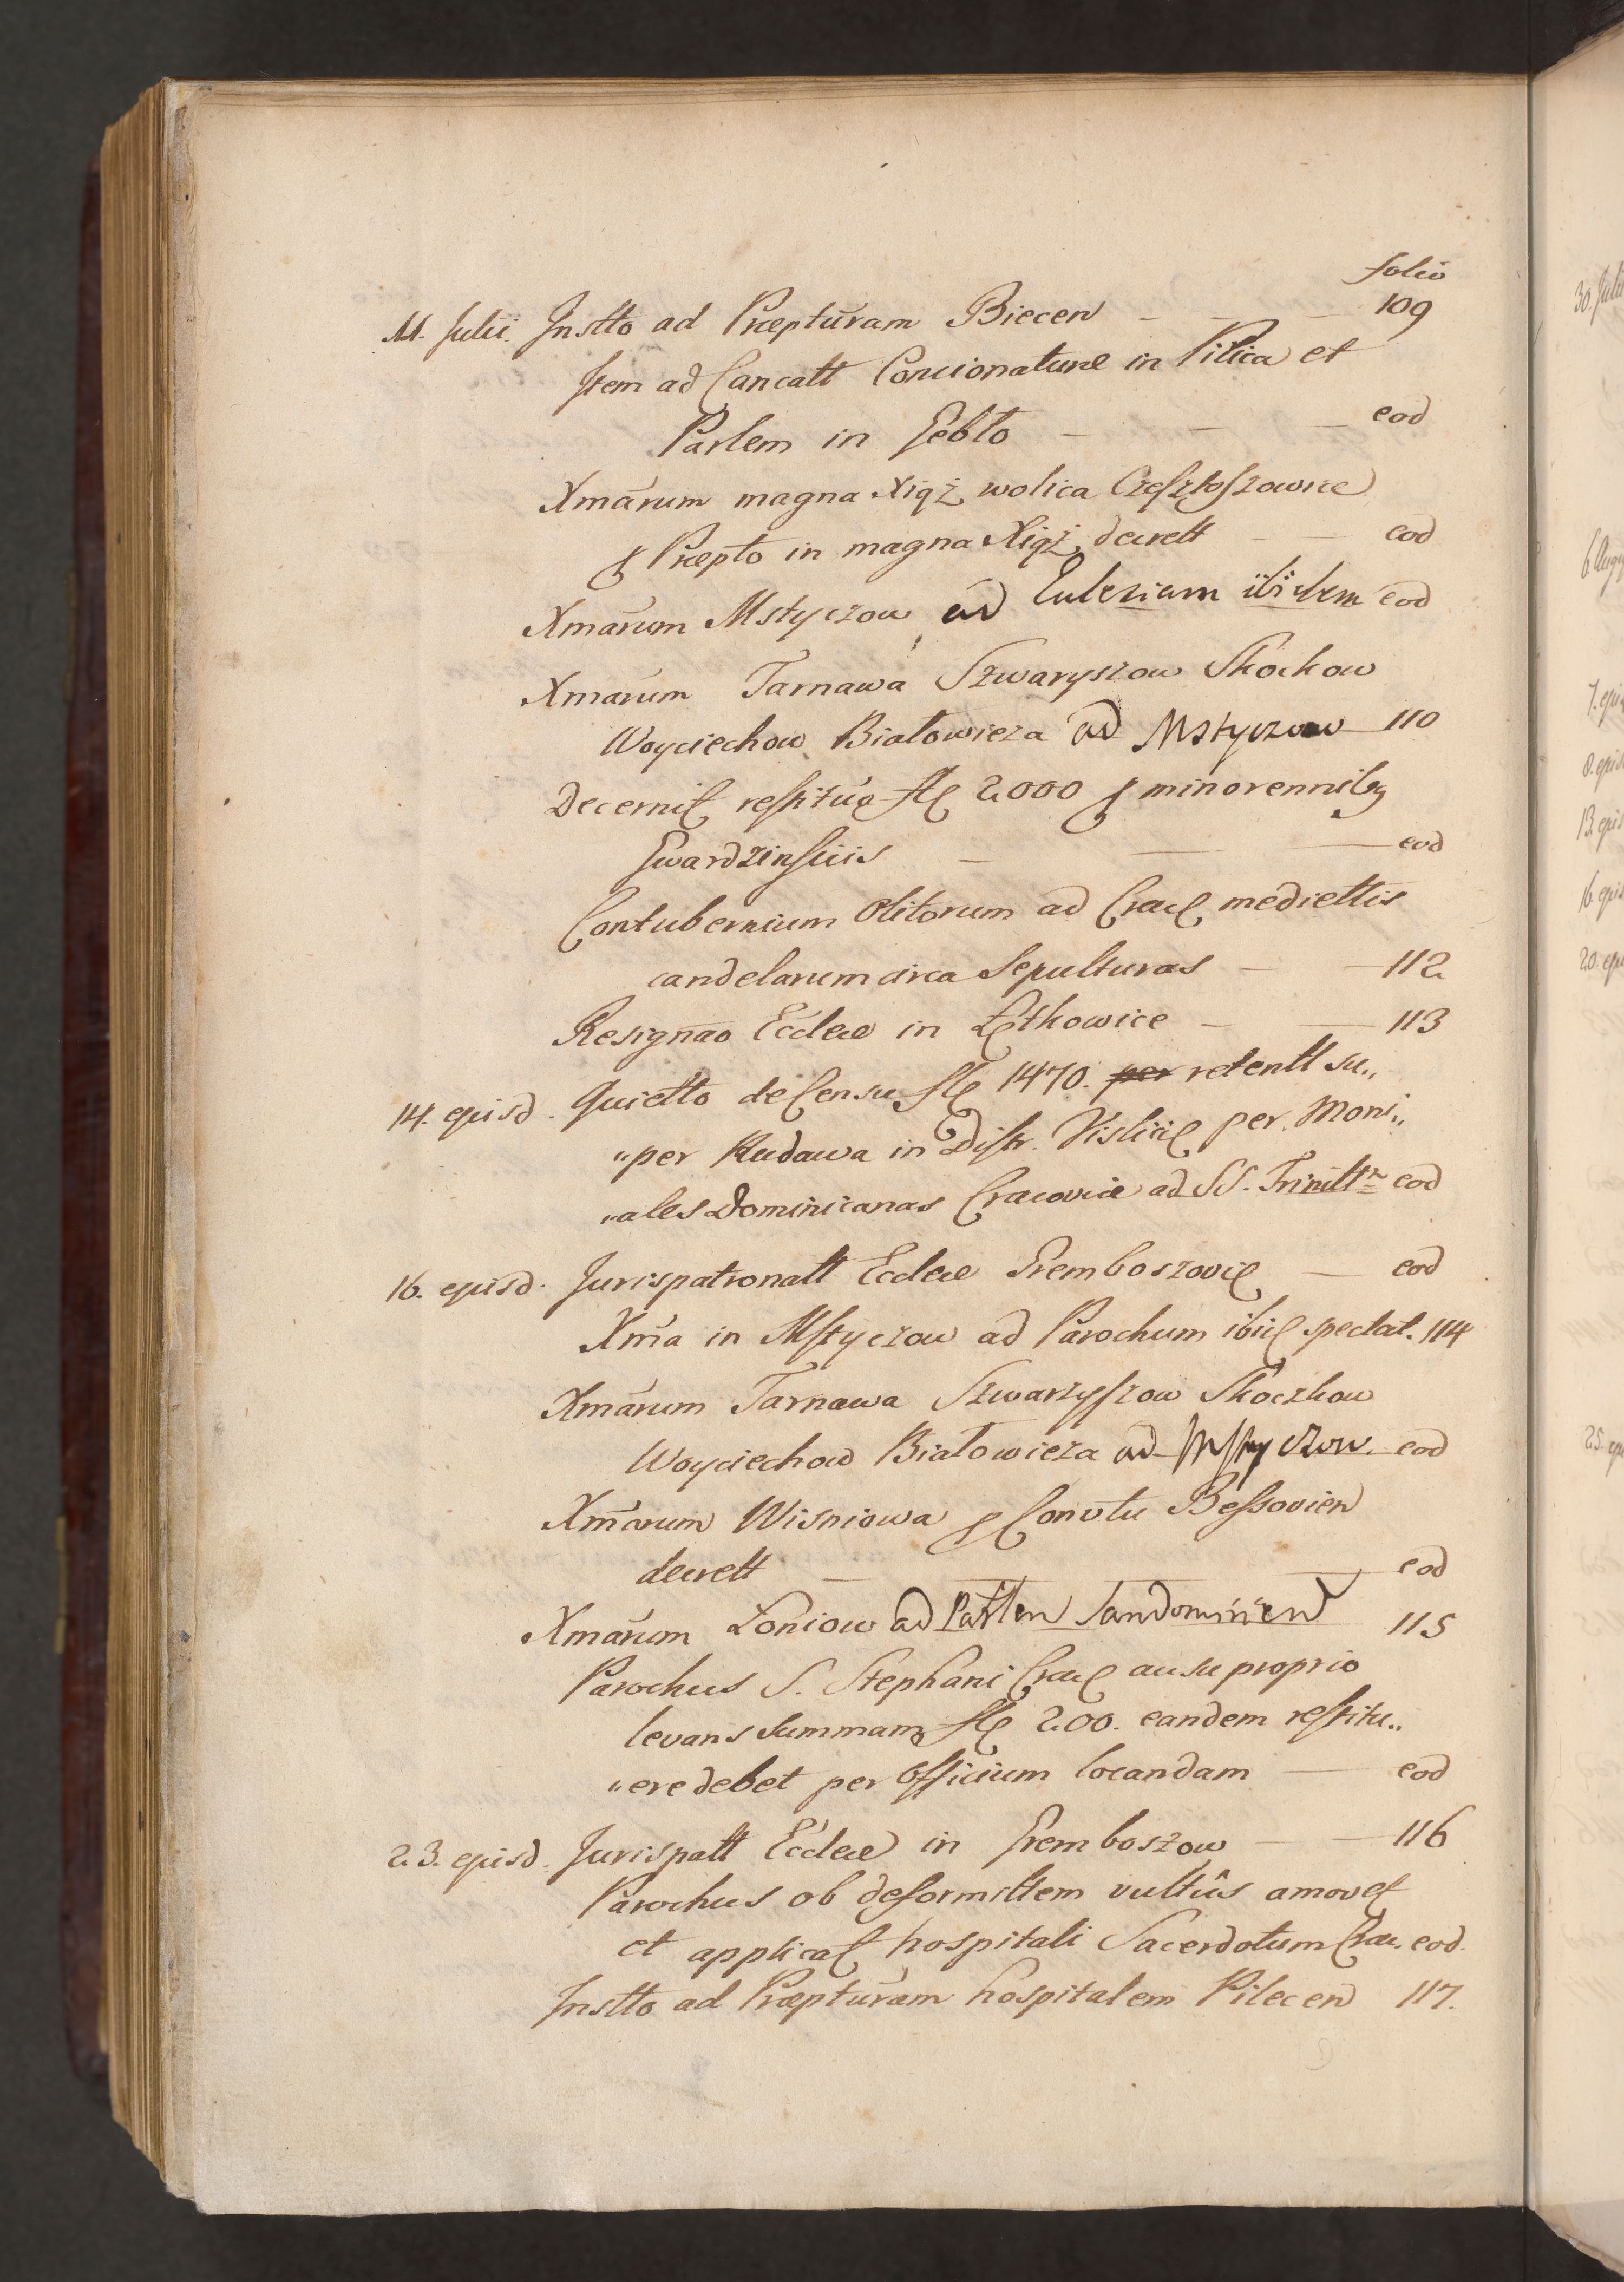 folio
11. Julii. Instto ad Præpturam Biecen — — — 109
Item ad Cancatt Concionaturæ in Pilica et
Parlem in Gebło — — — eod
Xmarum magna Xiąż wolica Czesztoszowice
ꝑ Præpto in magna Xiąż decrett — — eod
Xmarum Mstyczow ad Eulesiam ibidem eod
Xmarum Tarnawa Szwaryszow Skockow
Woyciechow Białowieza ad Mstyczow — 110
Decernit restitue fl 2000 ꝑ minorennibq
Gwardzinsciis — — — eod
Contubernium Olitorum ad Crac mediettis
candelarum circa Sepulturas — — 112
Resignao Ecclae in Łętkowice — — 113
14. ejusd. Quietto de Censu fl 1470. per retentt su„
„per Rudawa in Distr. Vislic per Moni„
„ales Dominicanas Cracoviæ ad SS. Trinitt eod
16. ejusd. Jurispatronatt Ecclae Gremboszovic — eod
Xma in Mstyczow ad Parochum ibid spectat. 114
Xmarum Tarnawa Szwarzyszow Skoczkow
Woyciechow Białowieza ad Mstyczow eod
Xmarum Wisniowa ꝑ Convtu Bessovien
decrett — — — eod
Xmarum Łoniow ad Parlen Sandomirien 115
Parochus S. Stephani Crac ausu proprio
levans Summam fl 200. eandem restitu„
„ere debet per Officium locandam — eod
23. ejusd. Jurispatt Ecclae in Gremboszow — — 116
Parochus ob deformittem vultûs amovet
et applicat hospitali Sacerdotum Crac. eod.
Instto ad Præpturam hospitalem Pilecen 117.